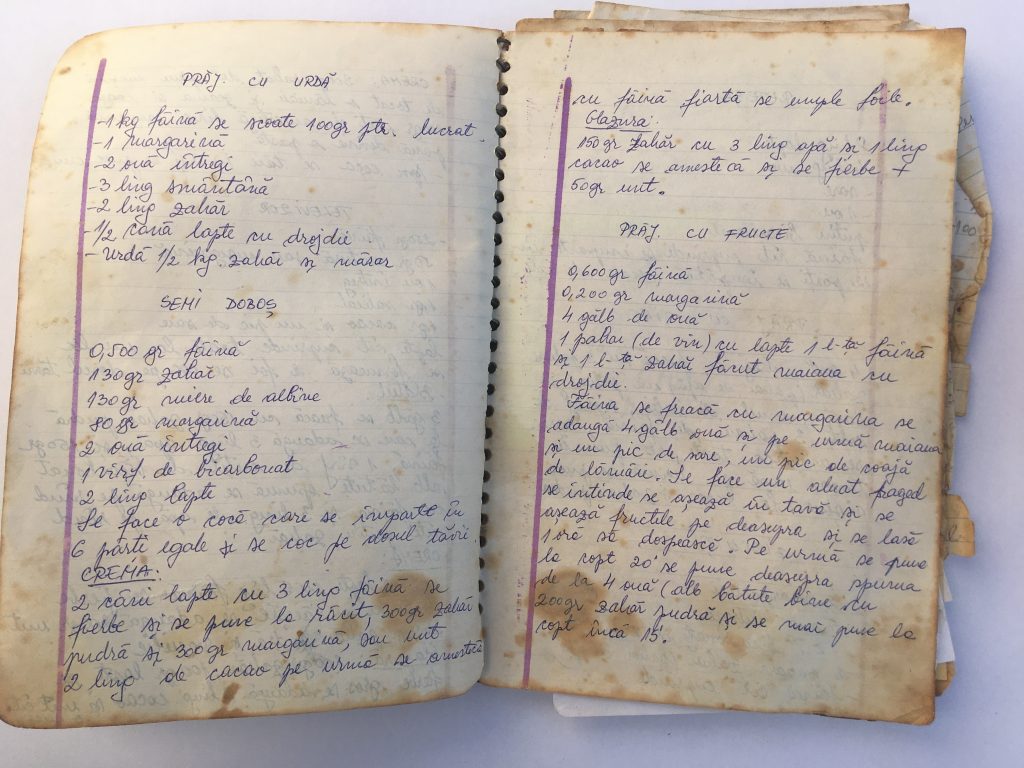 PRĂJ CU URDĂ
-1 kg făină se scoate 100gr ptr. lucrat
-1 margarină
-2 ouă întregi
-3 ling smântână
-2 ling zahăr
-1/2 cană lapte cu drojdie
-Urdă 1/2 kg. zahăr și mărar
SEMI DOBOȘ
0,500 gr făină
130gr zahăr
130gr miere de albine
80gr margarină
2 ouă întregi
1 vîrf. de bicarbonat
2 ling lapte
Se face o cocă care se împarte în
6 părti egale și se coc pe dosul tăvii.
CREMA:
2 căni lapte cu 3 ling făină se
fierbe și se pune la răcit, 300gr zahăr
pudră și 300gr margarină, sau unt
2 ling de cacao pe urmă se amestică
cu făină fiartă se umple foile.
Glazura.
150gr zahăr cu 3 ling apă si 1 ling
cacao se amestică și se fierbe +
50gr unt.
PRĂJ. CU FRUCTE
0,600gr făină
0,200gr margarină
4 gălb de ouă
1 pahar (de vin) cu lapte 1 l-ță făină
și 1 l-ță zahăr făcut maiaua cu
drojdie.
Făina se freacă cu margarina se
adaugă 4 gălb ouă și pe urmă maiaua
și un pic de sare, un pic de coajă
de lămâie. Se face un aluat fraged
se intinde se așează în tavă și se
așează fructile pe deasupra și se lasă
1 oră să dospească. Pe urmă se pune
la copt 20' se pune deasupra spuma
de la 4 ouă (alb bătute bine cu
200gr zahăr pudră și se mai pune la
copt încă 15.